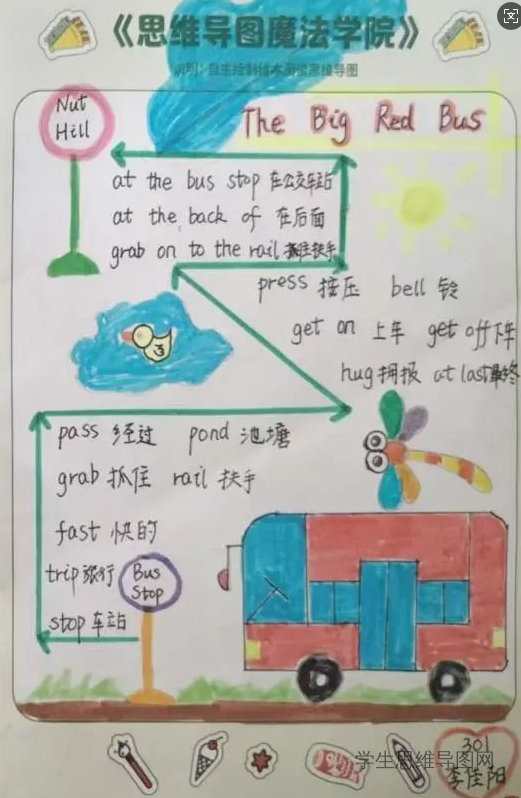 《思维导图魔法学院》
说明：自主绘制绘本阅读思维导图
Nut
Hill
The Big Red Bus
at the bus stop 在公交车站
at the back of 在后面
grab on to the rail 抓住扶手
press 按压 bell 铃
get on 上车 get off 下车
hug 拥报 at last 最终
pass 经过 pond 池塘
grab 抓住 rail 扶手
fast 快的
trip 旅行
Bus
Stop
stop 车站
301
李佳阳
学生思维导图网